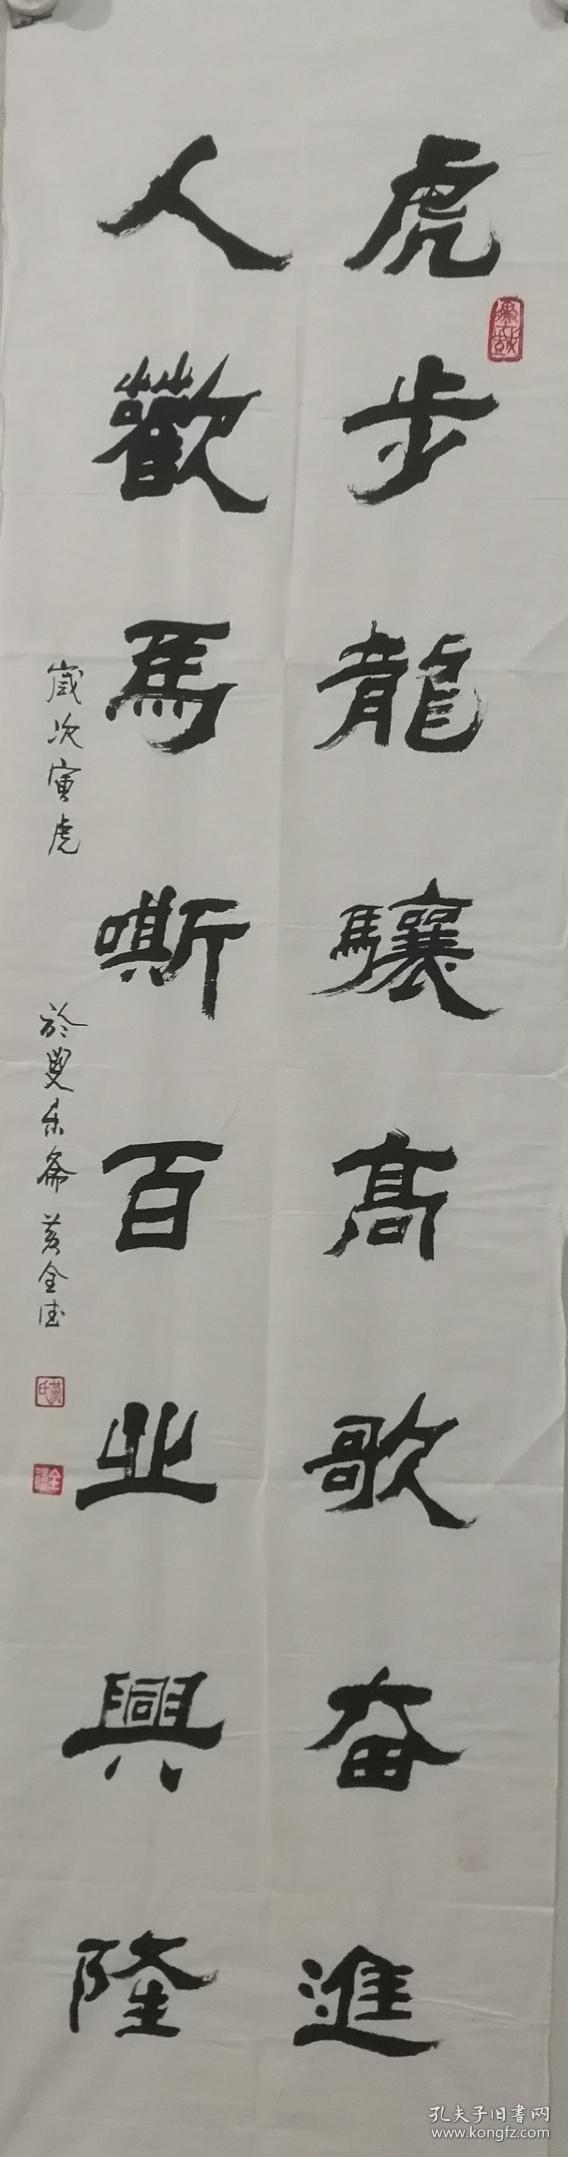 虎步龍驤高歌奋進
人歡馬嘶百业興隆
歲次寅虎
於叟乐斋 黄全德
黄氏
孔夫子旧書网
www.kongfz.com